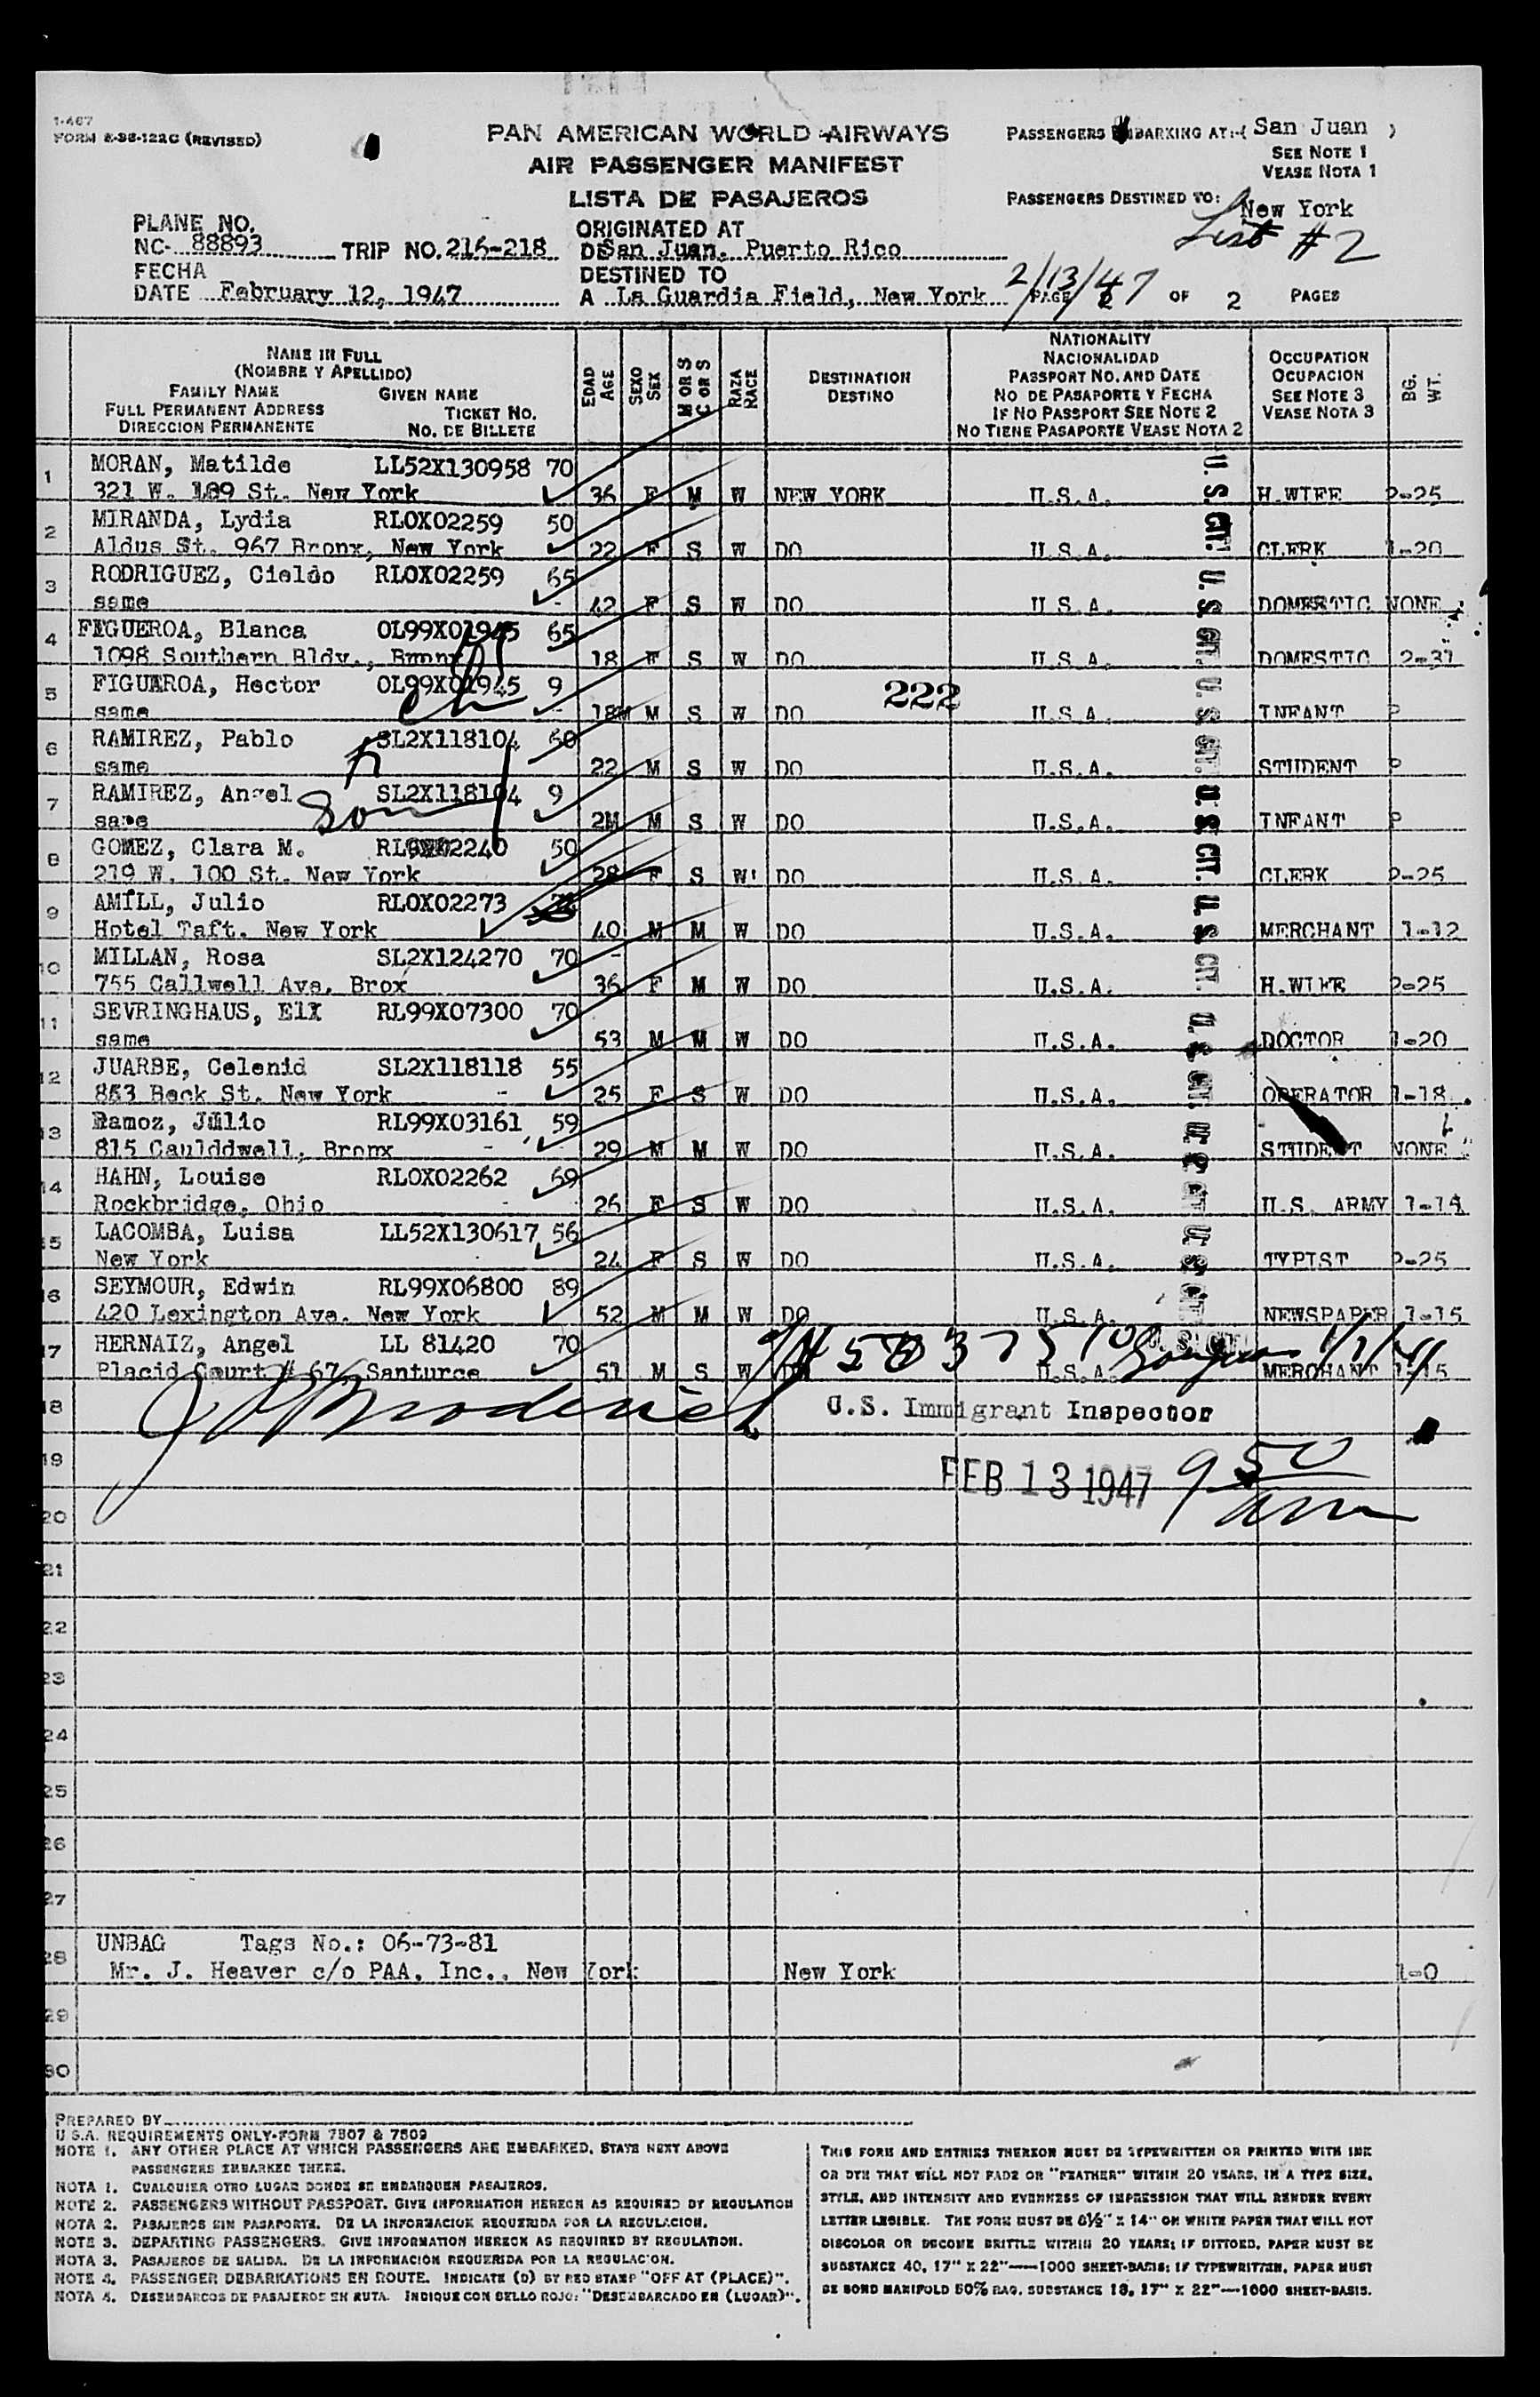 1-467
FORM E-38-122C (REVISED)
PAN AMERICAN WORLD AIRWAYS
AIR PASSENGER MANIFEST
LISTA DE PASAJEROS
PASSENGERS EMBARKING AT:-( San Juan )
SEE NOTE 1
VEASE NOTA 1
PASSENGERS DESTINED TO: New York
List #2
PLANE NO.
NC- 88893 TRIP NO. 216-218
ORIGINATED AT
DE San Juan, Puerto Rico
FECHA
DATE February 12, 1947
DESTINED TO
A La Guardia Field, New York
2/13/47
PAGE 2 OF 2 PAGES
NAME IN FULL
(NOMBRE Y APELLIDO)
FAMILY NAME GIVEN NAME
FULL PERMANENT ADDRESS TICKET NO.
DIRECCION PERMANENTE NO. DE BILLETE
EDAD AGE
SEXO SEX
M OR S
C OR S
RAZA RACE
DESTINATION
DESTINO
NATIONALITY
NACIONALIDAD
PASSPORT NO. AND DATE
NO DE PASAPORTE Y FECHA
IF NO PASSPORT SEE NOTE 2
NO TIENE PASAPORTE VEASE NOTA 2
OCCUPATION
OCUPACION
SEE NOTE 3
VEASE NOTA 3
BG. WT.
1 MORAN, Matilde LL52X130958 70
321 W. 189 St. New York 36 F M W NEW YORK U.S.A. H.WIFE 2-25
2 MIRANDA, Lydia RLOX02259 50
Aldus St. 967 Bronx, New York 22 F S W DO U.S.A. CLERK 1-20
3 RODRIGUEZ, Cieldo RLOX02259 65
same 42 F S W DO U.S.A. DOMESTIC NONE
4 FIGUEROA, Blanca OL99X01945 65
1098 Southern Bldv., Bronx 18 F S W DO U.S.A. DOMESTIC 2-31
5 FIGUAROA, Hector OL99X01945 9
same 18M M S W DO 222 U.S.A. INFANT P
ch
6 RAMIREZ, Pablo SL2X118104 60
same 22 M S W DO U.S.A. STUDENT P
7 RAMIREZ, Angel SL2X118104 9
same 2M M S W DO U.S.A. INFANT P
Son
8 GOMEZ, Clara M. RLOX02240 50
219 W. 100 St. New York 28 F S W DO U.S.A. CLERK 2-25
9 AMILL, Julio RLOX02273
Hotel Taft. New York 40 M M W DO U.S.A. MERCHANT 1-12
10 MILLAN, Rosa SL2X124270 70
755 Callwell Ave. Brox 36 F M W DO U.S.A. H.WIFE 2-25
11 SEVRINGHAUS, Elx RL99X07300 70
same 53 M M W DO U.S.A. DOCTOR 1-20
12 JUARBE, Celenid SL2X118118 55
853 Beck St. New York 25 F S W DO U.S.A. OPERATOR 1-18
13 Ramoz, Julio RL99X03161 59
815 Caulddwell, Bronx 29 M M W DO U.S.A. STUDENT NONE
14 HAHN, Louise RLOX02262 69
Rockbridge, Ohio 26 F S W DO U.S.A. U.S. ARMY 1-14
15 LACOMBA, Luisa LL52X130617 56
New York 24 F S W DO U.S.A. TYPIST 2-25
16 SEYMOUR, Edwin RL99X06800 89
420 Lexington Ave. New York 52 M M W DO U.S.A. NEWSPAPER 1-15
17 HERNAIZ, Angel LL 81420 70
Placid Court # 67 Santurce 51 M S W DO U.S.A. MERCHANT 1-15
U. S. CIT. U. S. CIT. U. S. CIT. U. S. CIT. U. S. CIT. U. S. CIT. U. S. CIT. U. S. CIT.
18 U.S. Immigrant Inspector
19 FEB 13 1947 9 50
am
20
21
22
23
24
25
26
27
28 UNBAG Tags No.: 06-73-81
Mr. J. Heaver c/o PAA, Inc., New York New York 1-0
29
30
PREPARED BY
U.S.A. REQUIREMENTS ONLY-FORM 7507 & 7509
NOTE 1. ANY OTHER PLACE AT WHICH PASSENGERS ARE EMBARKED, STATE NEXT ABOVE
PASSENGERS EMBARKED THERE.
NOTA 1. CUALQUIER OTRO LUGAR DONDE SE EMBARQUEN PASAJEROS.
NOTE 2. PASSENGERS WITHOUT PASSPORT. GIVE INFORMATION HEREON AS REQUIRED BY REGULATION
NOTA 2. PASAJEROS SIN PASAPORTE. DE LA INFORMACION REQUERIDA POR LA REGULACION.
NOTE 3. DEPARTING PASSENGERS. GIVE INFORMATION HEREON AS REQUIRED BY REGULATION.
NOTA 3. PASAJEROS DE SALIDA. DE LA INFORMACION REQUERIDA POR LA REGULACION.
NOTE 4. PASSENGER DEBARKATIONS EN ROUTE. INDICATE (D) BY RED STAMP "OFF AT (PLACE)".
NOTA 4. DESEMBARCOS DE PASAJEROS EN RUTA. INDIQUE CON SELLO ROJO: "DESEMBARCADO EN (LUGAR)".
THIS FORM AND ENTRIES THEREON MUST BE TYPEWRITTEN OR PRINTED WITH INK
OR DYE THAT WILL NOT FADE OR "FEATHER" WITHIN 20 YEARS, IN A TYPE SIZE,
STYLE, AND INTENSITY AND EVENNESS OF IMPRESSION THAT WILL RENDER EVERY
LETTER LEGIBLE. THE FORM MUST BE 8½" X 14" ON WHITE PAPER THAT WILL NOT
DISCOLOR OR BECOME BRITTLE WITHIN 20 YEARS; IF DITTOED, PAPER MUST BE
SUBSTANCE 40, 17" X 22"—1000 SHEET-BASIS; IF TYPEWRITTEN, PAPER MUST
BE BOND MANIFOLD 50% RAG, SUBSTANCE 18, 17" X 22"—1000 SHEET-BASIS.